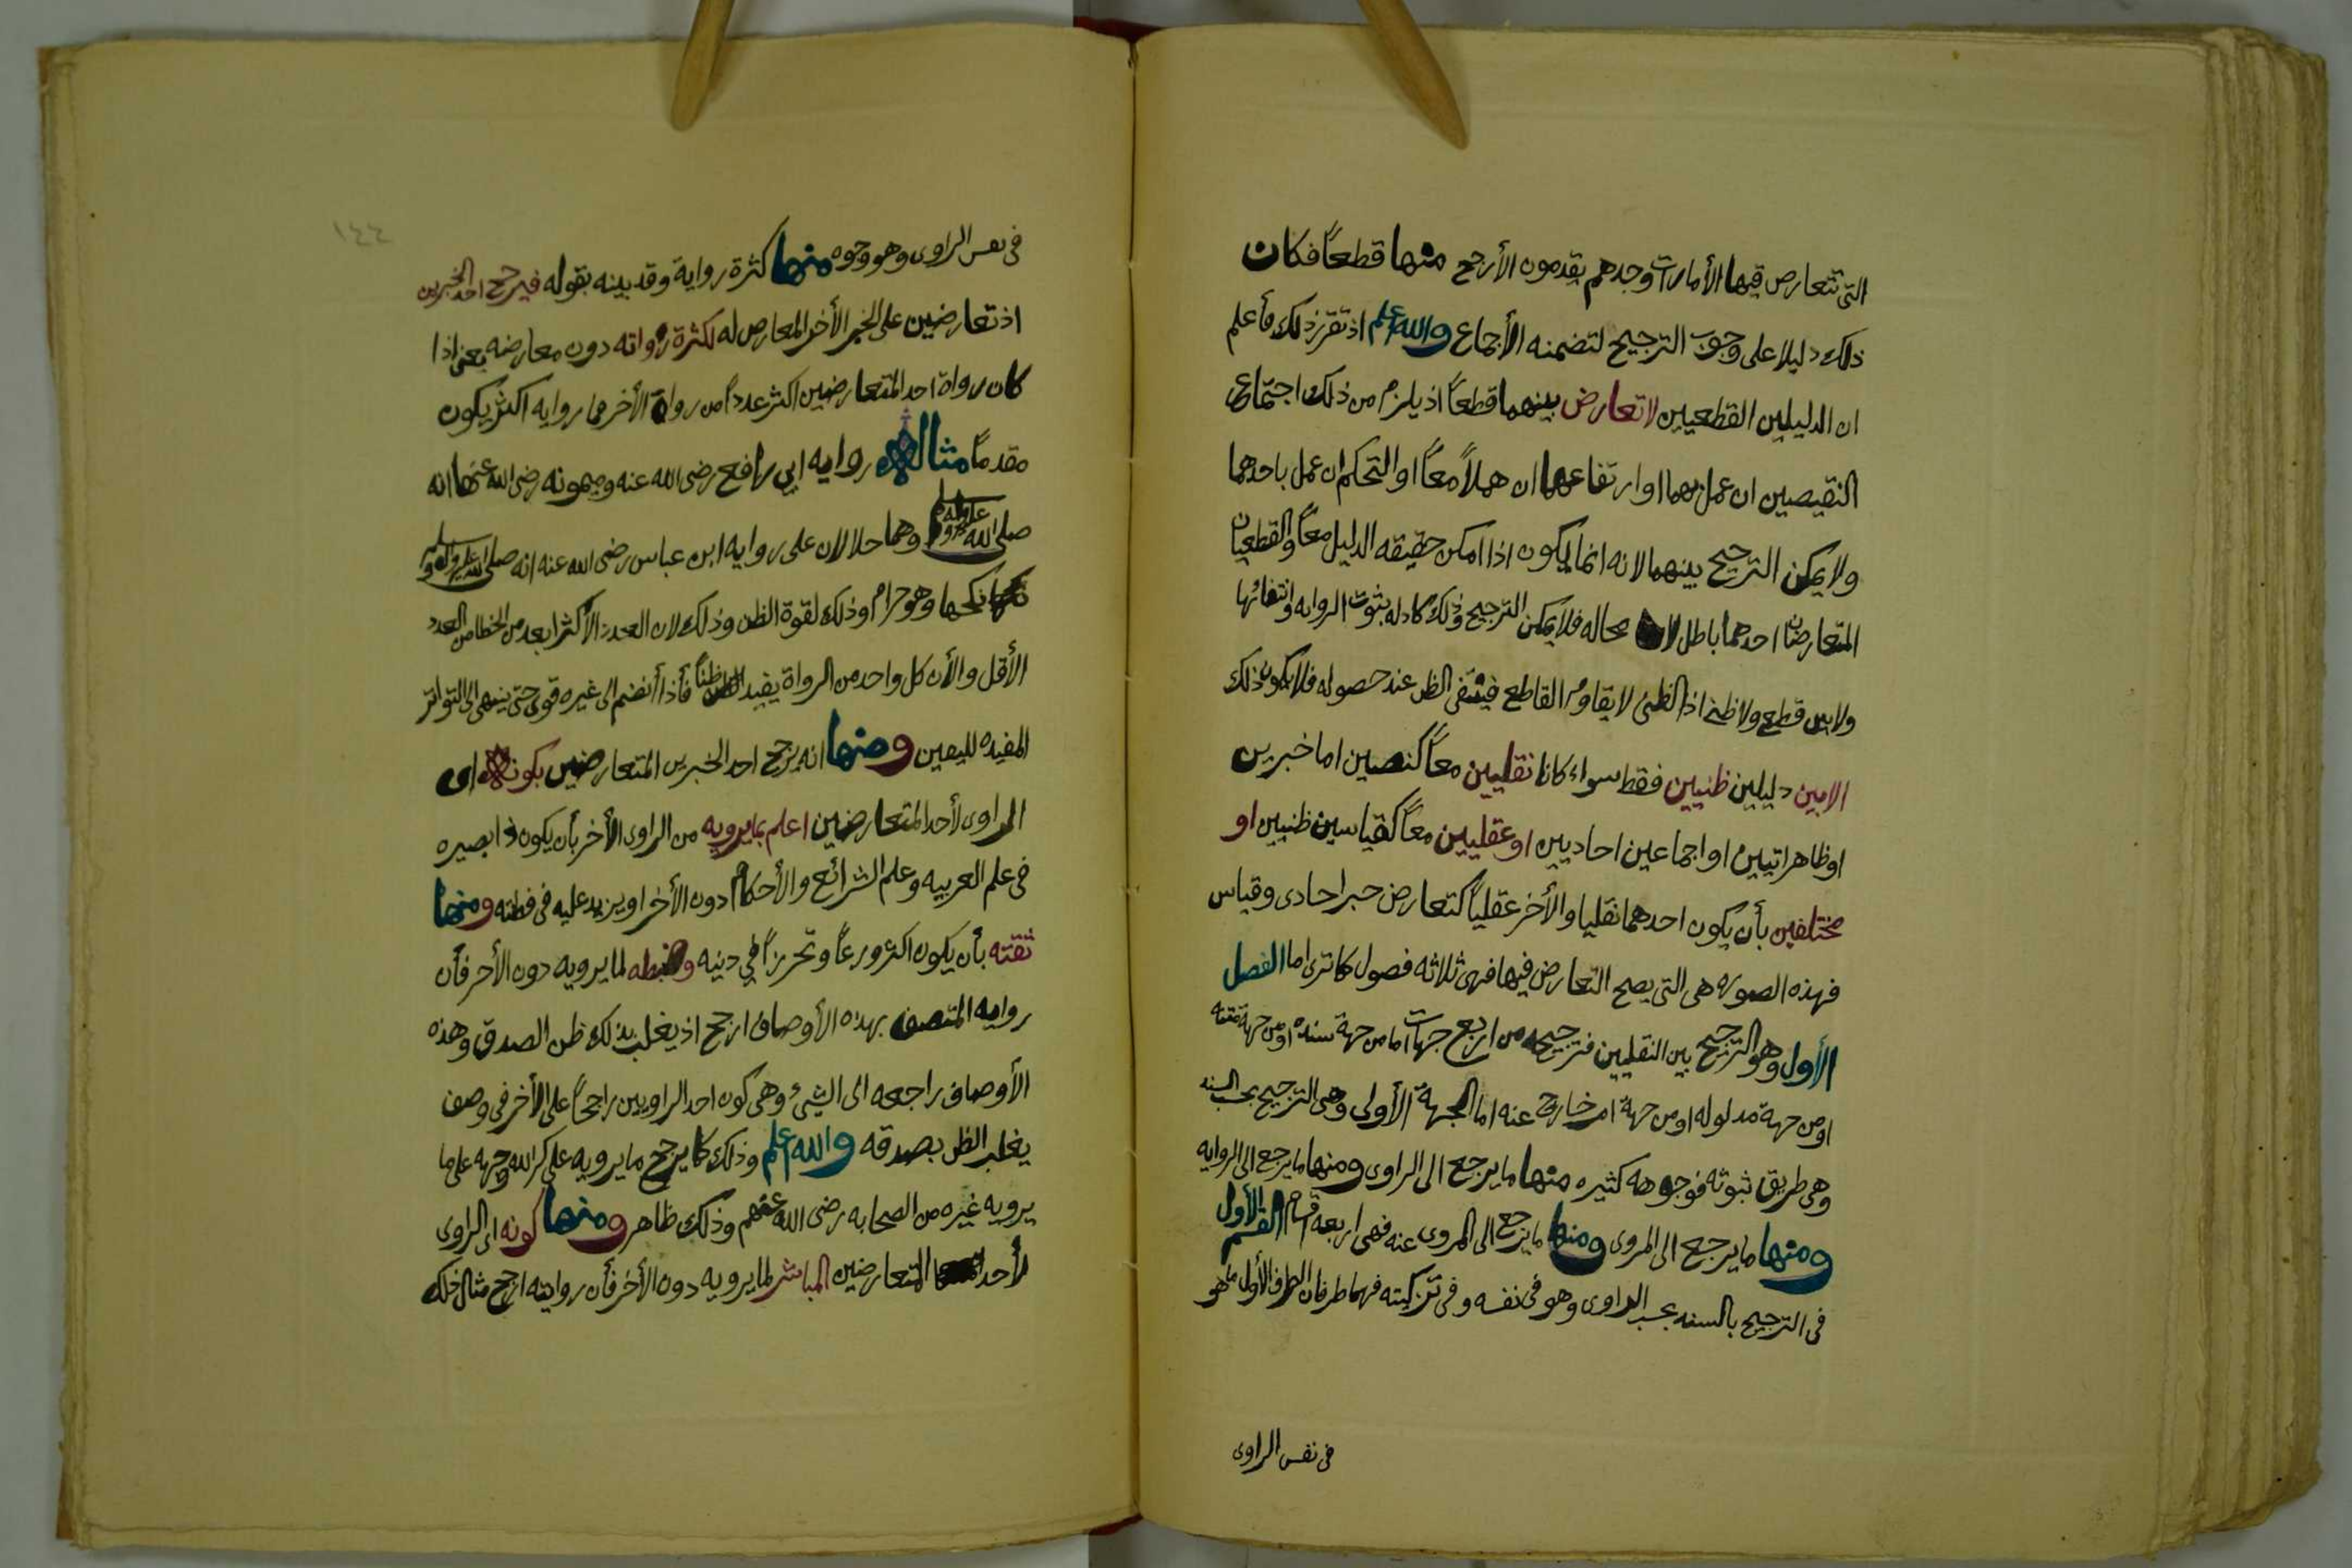 التى تتعارض فيها الأمارات وجدهم يقدمون الأرجح منها قطعاً فكان
ذلك دليلا على وجوب الترجيح لتضمنه الأجماع والله اعلم اذ تقرر ذلك فأعلم
ان الدليلين القطعيين لا تعارض بينهما قطعاً اذ يلزم من ذلك اجتماع
النقيضين ان عمل بهما او ارتفاعهما ان هملاً معاً او التحكم ان عمل باحدهما
ولا يمكن الترجيح بينهما لانه انما يكون اذا امكن حقيقه الدليل معاً والقطعيان
المتعارضان احدهما باطل لا محاله فلا يمكن الترجيح وذلك كادله بثوت الرؤيه وانتفائها
ولا بين قطعي ولا ظني اذ الظنى لا يقاوم القاطع فينتفى الظن عند حصوله فلا يكون ذلك
الا بين دليلين ظنيين فقط سواء كانا نقليين معاً كنصين اما خبرين
او ظاهر اتيين او اجماعين احاديين او عقليين معاً كقياسين ظنيين او
مختلفين بأن يكون احدهما نقليا والأخر عقلياً كتعارض خبر احادى وقياس
فهذه الصوره هى التى يصح التعارض فيها فهى ثلاثه فصول كما ترى اما الفصل
الأول وهو الترجيح بين النقليين فترجيحه من اربع جهات اما من جهة سنده او من جهة متنه
او من جهة مدلوله او من جهة امر خارج عنه اما الجهة الأولى وهى الترجيح بحسب السند
وهى طريق ثبوته فوجوهه كثيره منها ما يرجع الى الراوى ومنها ما يرجع الى الروايه
ومنها ما يرجع الى المروى ومنها ما يرجع الى المروى عنه فهى اربعه اقسام القسم الأول
فى الترجيح بالسند بحسب الراوى وهو فى نفسه وفى تزكيته فهما طرفان الطرف الأول ما هو
فى نفس الراوى
١٤٤
فى نفس الراوى وهو وجوه منها كثرة رواية وقد بينه بقوله فيرجح احد الخبرين
اذ تعارضين على الخبر الأخر المعارض له لكثرة رواته دون معارضه يعنى اذا
كان رواة احد المتعارضين اكثر عدداً من رواة الأخر فما روايه اكثر يكون
مقدماً مثاله روايه ابى رافع رضى الله عنه وميمونه رضى الله عنها انه
صلى الله عليه واله وسلم وهما حلالان على روايه ابن عباس رضى الله عنه انه صلى الله عليه واله وسلم
نكحها وهو حرام وذلك لقوة الظن وذلك لان العدد الأكثر ابعد من الخطا من العدد
الأقل والأن كل واحد من الرواة يفيد ظناً فأذا أنضم الى غيره قوى حتى ينتهى الى التواتر
المفيده لليقين ومنها انه يرجح احد الخبرين المتعارضين بكونه اى
الراوى لأحد المتعارضين اعلم بما يرويه من الراوى الأخر بأن يكون ذا بصيره
فى علم العربيه وعلم الشرائع والأحكام دون الأخر او يزيد عليه فى فطنته ومنها
ثقته بأن يكون اكثر ورعاً وتحرزاً فى دينه وضبطه لما يرويه دون الأخر فأن
روايه المتصف بهذه الأوصاف ارجح اذ يغلب بذلك ظن الصدق وهذه
الأوصاف راجعه الى الشىء وهى كون احد الراويين راجحاً على الأخر فى وصف
يغلب الظن بصدقه والله اعلم وذلك كما يرجح ما يرويه على كرم الله وجهه على ما
يرويه غيره من الصحابه رضى الله عنهم وذلك ظاهر ومنها كونه اى الراوى
لأحد المتعارضين المباشر لما يرويه دون الأخر فأن روايته ارجح مثال ذلك